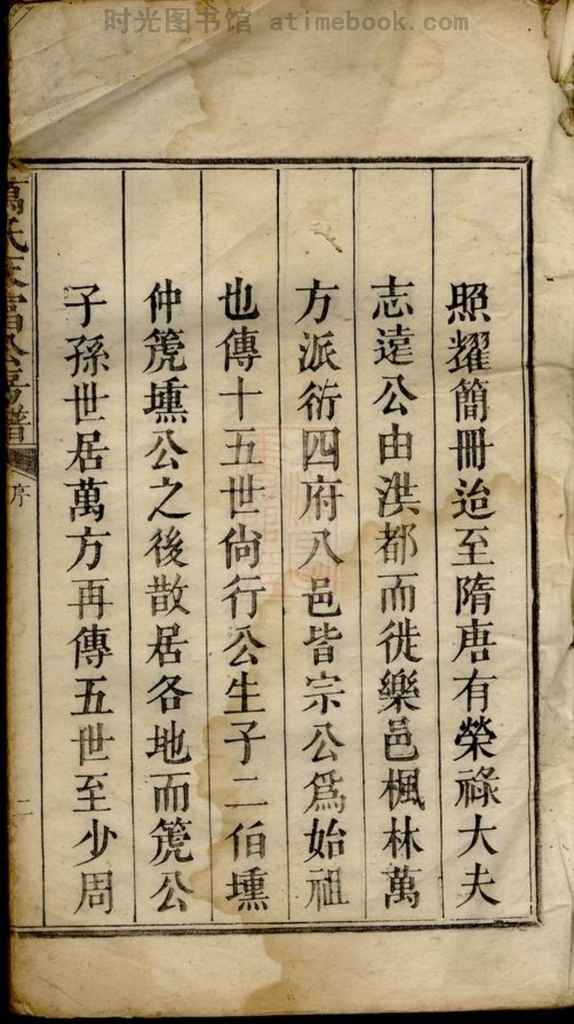 时光图书馆 atimebook.com
照耀簡冊迨至隋唐有榮祿大夫
志遠公由洪都而徙樂邑楓林萬
方派衍四府八邑皆宗公爲始祖
也傳十五世尙行公生子二伯壎
仲箎壎公之後散居各地而箎公
子孫世居萬方再傳五世至少周
萬氏天富公房譜
序
二